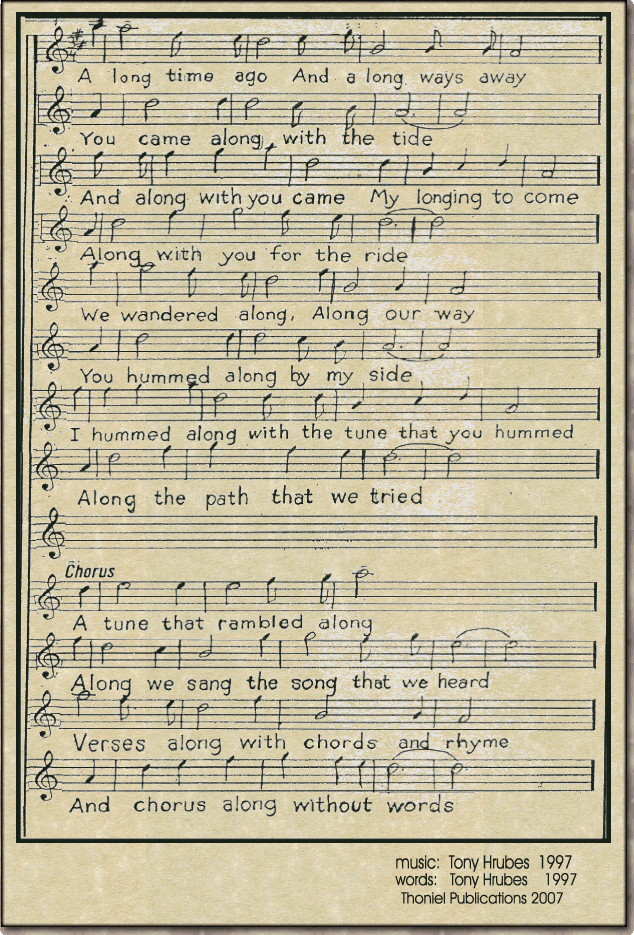 A long time ago And a long ways away
You came along, with the tide
And along with you came My longing to come
Along with you for the ride
We wandered along, Along our way
You hummed along by my side
I hummed along with the tune that you hummed
Along the path that we tried
Chorus
A tune that rambled along
Along we sang the song that we heard
Verses along with chords and rhyme
And chorus along without words
music: Tony Hrubes 1997
words: Tony Hrubes 1997
Thoniel Publications 2007